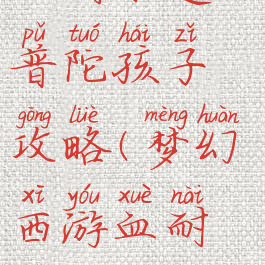 pǔ tuó hái zǐ
普陀孩子
gōng lüè mèng huàn
攻略(梦幻
xī yóu xuè nài
西游血耐